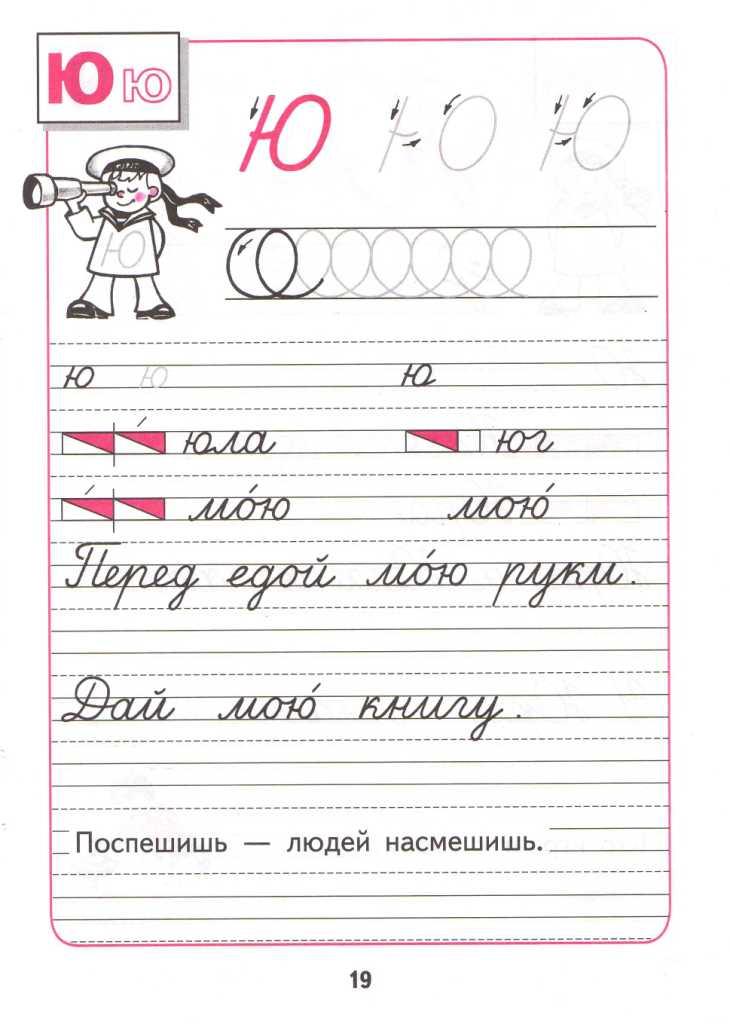 Ю ю
Ю Ю Ю
Ю
ю ю ю
юла юг
мо́ю мою́
Перед едой мо́ю руки.
Дай мою́ книгу.
Поспешишь — людей насмешишь.
19